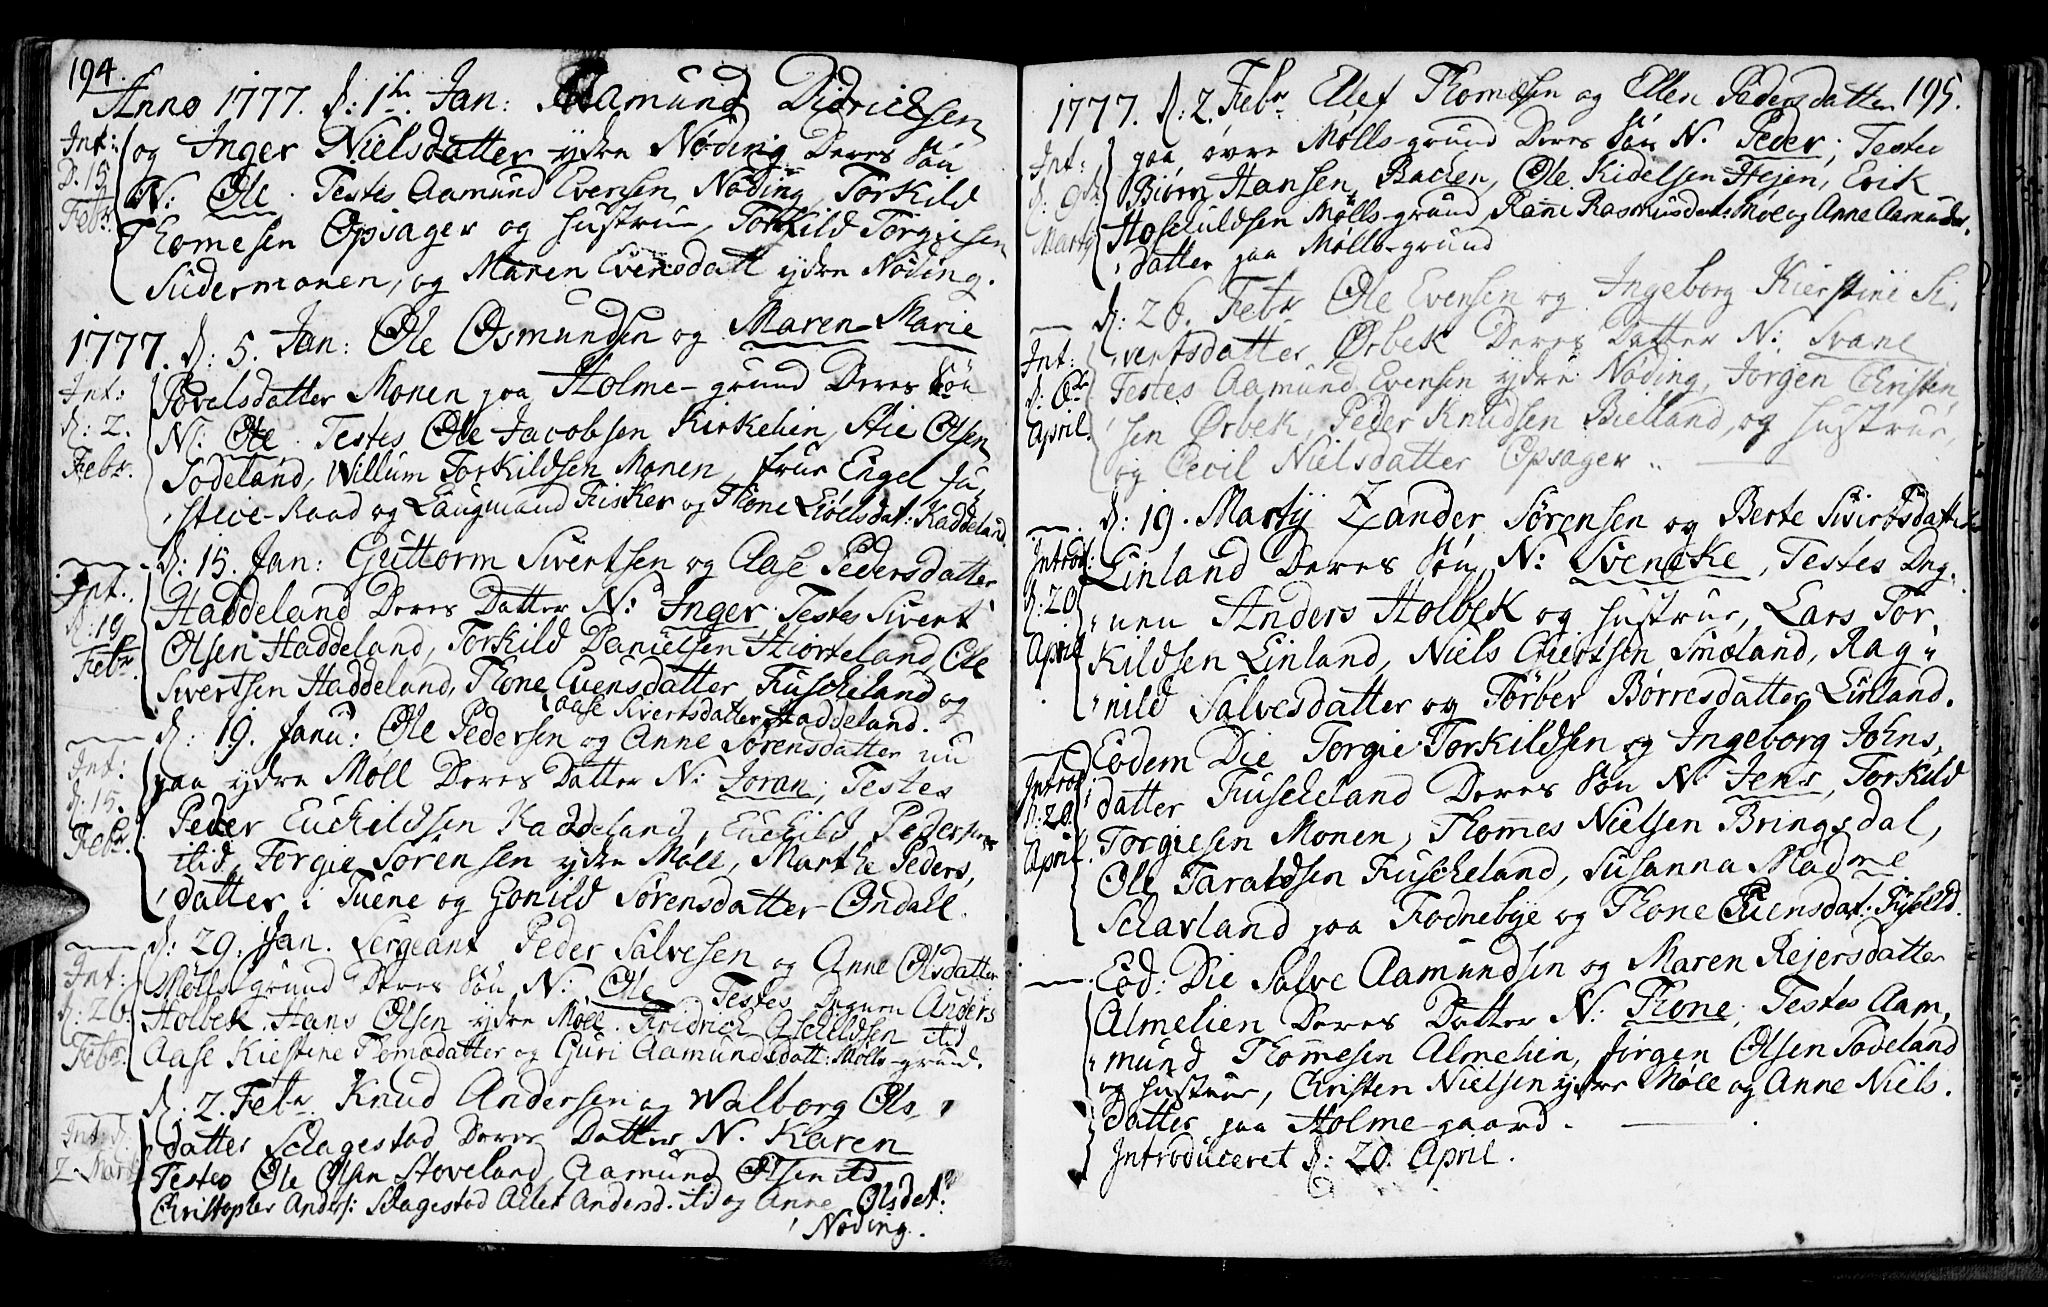 194.
Anno 1777. d: 1ste Jan: Aamund Didrichsen
Int: og Inger Nielsdatter ydre Nøding Deres Søn
D. 15 N: Ole. Testes Aamund Evensen Nøding, Torkild
Febr. Thomesen Opsager og hustrue, Torkild Torgiesen
Sudermonen, og Maren Evensdatt ydre Nøding.
1777. d: 5. Jan: Ole Osmundsen og Maren Marie
Int: Povelsdatter Monen paa Holme-grund Deres Søn
d: 2. N: Ole. Testes Ole Jacobsen Kirkelien, Stie Olsen
Febr. Sodeland, Willum Torkildsen Monen, frue Engel Ju,
stice-Raad og Laugmand Fisker og Thone Liøelsdat: Kaddeland.
d: 15. Jan: Guttorm Sivertsen og Aase Pedersdatter
Int. Haddeland Deres Datter N: Inger. Testes Sivert
d: 19 Olsen Haddeland, Torkild Danielsen Hiorteland, Ole
Febr. Sivertsen Haddeland, Thone Evensdatter Fuscheland og
Aase Sivertsdatter Haddeland.
d: 19. Janu: Ole Pedersen og Anne Sørensdatter nu
Int: paa ydre Møll Deres Datter N: Joran; Testes
d: 15. Peder Euchildsen Kaddeland, Euchild Pedersen
Febr. itid, Torgie Sørensen ydre Møll, Marthe Peders,
datter i Tuene og Gonild Sørensdatter Ondall.
d: 29. Jan. Sergeant Peder Salvesen og Anne Olsdatter
Int: Mølls-grund Deres Søn N: Ole Testes Degnen Anders
d: 26. Holbek. Hans Olsen ydre Møll. Fridrich Aschildsen itid
Febr: Aase Kiestine Thomædatter og Guri Aamundsdatt: Mølls-grund.
d: 2. Febr. Knud Andersen og Walborg Ols,
Int: d. datter Schagestad Deres Datter N. Karen
2 Mart Testes Ole Olsen Stoveland, Aamund Olsen itd
Christopher Anders: Schagestad Allet Andersd. itid og Anne Olsdat:
Nøding.
1777. d: 2. Febr Ellef Thomesen og Ellen Pedersdatter 195.
Int: paa øvre Mølls-grund Deres Søn N. Peder; Testes
d: 9de Biørn Hansen Bachen, Ole Kidelsen Hejen, Erik
Martij Hoschuldsen Mølls-grund, Ranni Rasmusdat: Moe og Anne Aamunds,
datter paa Mølls-grund
d: 26. Febr Ole Evensen og Ingeborg Kierstine Si,
Int: vertsdatter Ørbek Deres Datter N: Svane
d: 6te Testes Aamund Evensen ydre Nøding, Jørgen Christen,
April. sen Ørbek, Peder Knudsen Bielland, og hustrue,
og Cecil Nielsdatter Opsager.
d: 19. Martij Zander Sørensen og Berte Sivertsdatter
Introd: Linland Deres Søn N: Svencke, Testes Deg,
d: 20 nen Anders Holbek og hustrue, Lars Tor,
April kildsen Linland, Niels Giertsen Smeland, Rag,
nild Salvesdatter og Tørber Børresdatter Linland.
Eodem Die Torgie Torkildsen og Ingeborg Johns,
Introd: datter Fuscheland Deres Søn N. Jens, Torkild
d: 20. Torgiesen Monen, Thommes Nielsen Bringsdal,
April. Ole Taraldsen Fuscheland, Susanna Madme
Schavland paa Fodnebye og Thone Euensdat: Fusceld.
Eod: Die Salve Aamundsen og Maren Rejersdatter
Almelien Deres Datter N: Thone; Testes Aam,
mund Thommesen Almelien, Jørgen Olsen Sodeland
og hustrue, Christen Nielsen ydre Møll og Anne Niels,
datter paa Holme-gaard.
Introduceret d: 20. April.